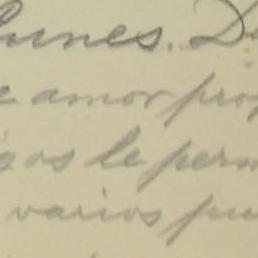 lunes. D
e amor prop
gos le perm
varios pu